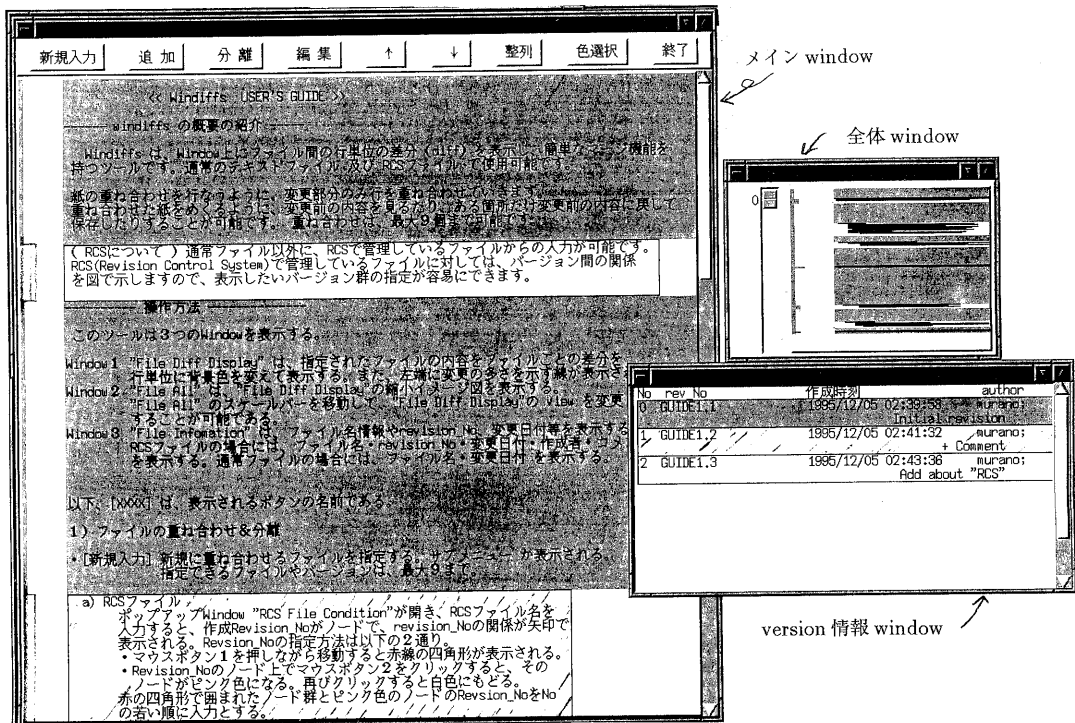 新規入力 追 加 分 離 編 集 ↑ ↓ 整列 色選択 終了
<< Windiffs USER'S GUIDE >>
windiffs の概要の紹介
Windiffs は、Window上にファイル間の行単位の差分 (diff) を表示し、簡単なマージ機能を
持つツールです。通常のテキストファイル及び RCSファイルで使用可能です。
紙の重ね合わせを行なうように、変更部分のみ行を重ね合わせていきます。
重ね合わせた紙をめくるように、変更前の内容を見るたり、ある箇所だけ変更前の内容に戻して
保存したりすることが可能です。重ね合わせは、最大9個まで可能です。
( RCSについて ) 通常ファイル以外に、RCSで管理しているファイルからの入力が可能です。
RCS(Revision Control System)で管理しているファイルに対しては、バージョン間の関係
を図で示しますので、表示したいバージョン群の指定が容易にできます。
操作方法
このツールは3つのWindowを表示する。
Window 1 "File Diff Display" は、指定されたファイルの内容をファイルごとの差分を
行単位に背景色を変えて表示する。また、左端に変更の多さを示す線が表示され
Window 2 "File All" は、"File Diff Display"の縮小イメージ図を表示する。
"File All" のスケールバーを移動して、"File Diff Display"の view を変更
することが可能である。
Window 3 "File Infomation" は、ファイル名情報やrevision_No、変更日付等を表示する
RCSファイルの場合には、ファイル名・revision_No・変更日付・作成者・コメ
を表示する。通常ファイルの場合には、ファイル名・変更日付 を表示する。
以下、[XXXX] は、表示されるボタンの名前である。
1) ファイルの重ね合わせ&分離
・[新規入力] 新規に重ね合わせるファイルを指定する。サブメニュー が表示される。
指定できるファイルやバージョンは、最大9まで。
a) RCSファイル
ポップアップWindow "RCS File Condition"が開き、RCSファイル名を
入力すると、作成Revision_Noがノードで、revision_Noの関係が矢印で
表示される。Revsion_Noの指定方法は以下の2通り。
・マウスボタン1を押しながら移動すると赤線の四角形が表示される。
・Revision_Noのノード上でマウスボタン2をクリックすると、その
ノードがピンク色になる。再びクリックすると白色にもどる。
赤の四角形で囲まれたノード群とピンク色のノードのRevsion_NoをNo
の若い順に入力とする。
メイン window
全体 window
0
No rev No 作成時刻 author
0 GUIDE1.1 1995/12/05 02:39:58 murano;
Initial revision
1 GUIDE1.2 1995/12/05 02:41:32 murano;
+ Comment
2 GUIDE1.3 1995/12/05 02:43:36 murano;
Add about "RCS"
version 情報 window